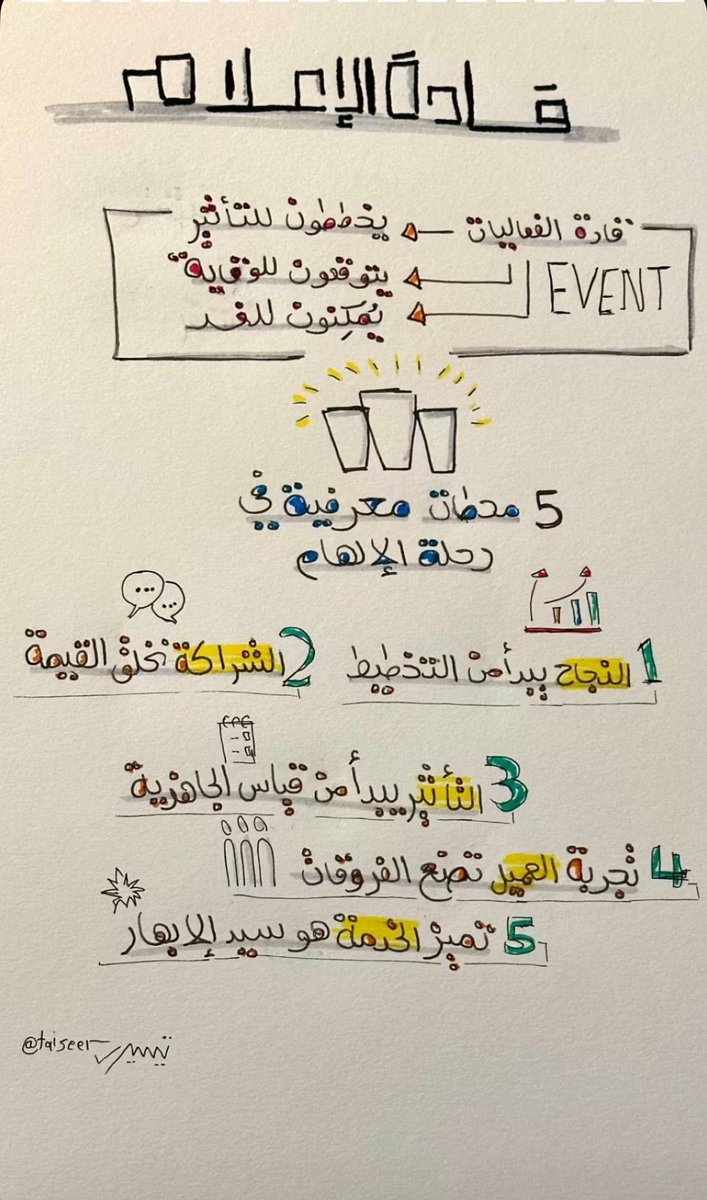 قادة الإعلام
قادة الفعاليات
EVENT
يخططون للتأثير
يتوقعون للوقاية
يُمَكِنون للغد
5 محطات معرفية في
رحلة الإلهام
1 النجاح يبدأ من التخطيط
2 الشراكة تخلق القيمة
3 التأثير يبدأ من قياس الجاهزية
4 تجربة العميل تصنع الفروقات
5 تميز الخدمة هو سيد الإبهار
@taiseer تيسير